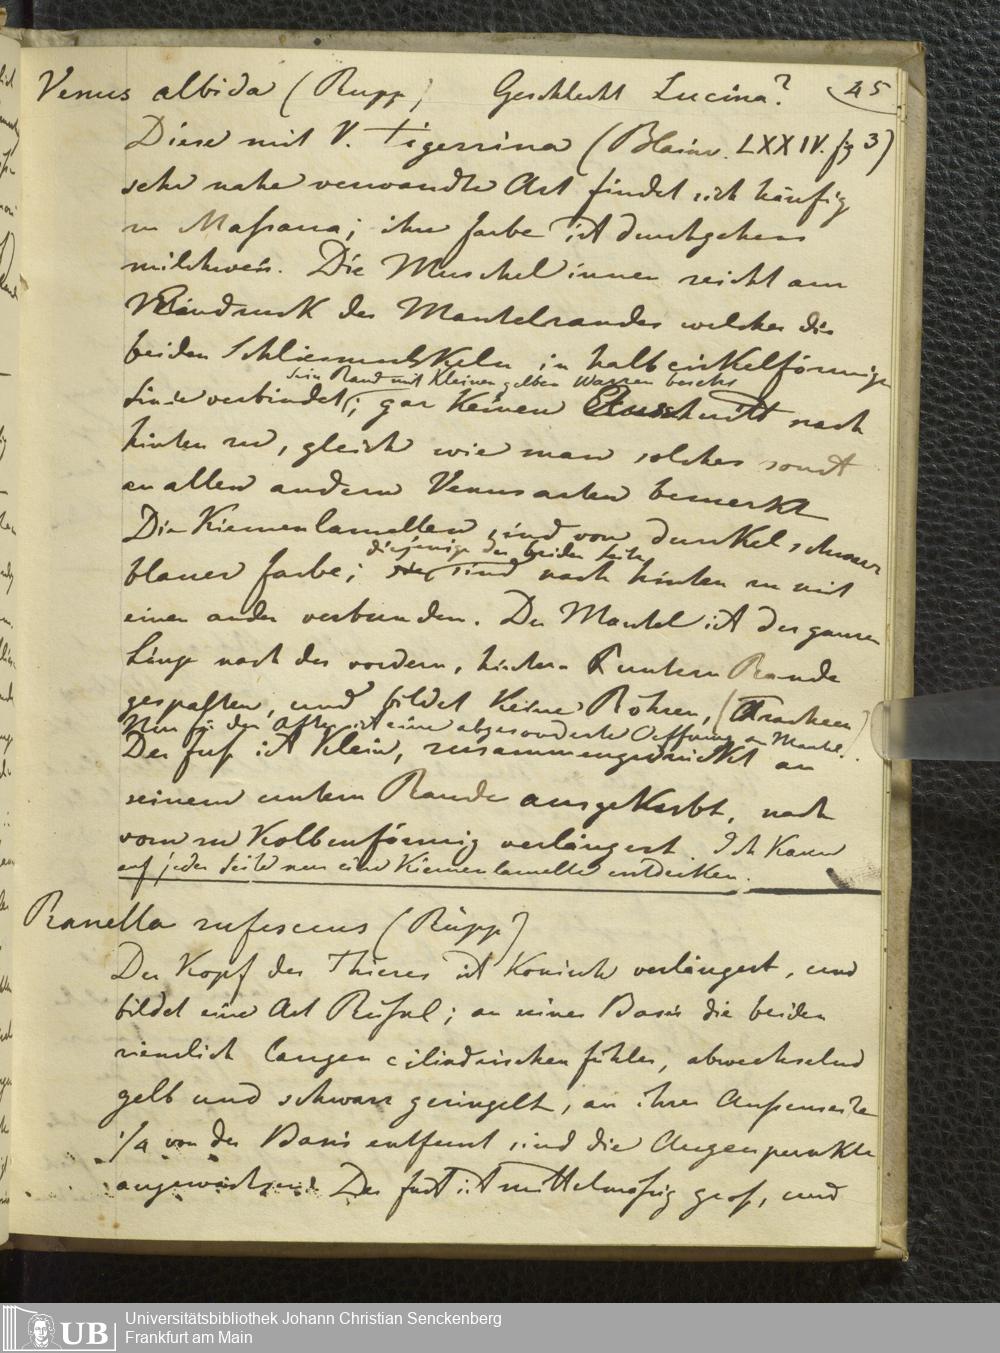 Venus albida (Rupp) Geschlecht Lucina? 45
Diese mit V. Tigerrina (Blainv. LXXIV. fig 3)
sehr nahe verwandte Art findet sich häufig
zu Massaua; ihre farbe ist durchgehens
milchweis. Die Muschel innen zeicht am
Eindruck des Mantelrandes welcher die
beiden Schliesmuskeln in halbcirkelförmige
sein Rand mit kleinen gelben Warzen besetzt
Linie verbindet; gar keinen Ausschnitt nach
hinten zu, gleich wie man solches sonst
an allen andern Venusarten bemerkt
Die Kiemenlamellen sind von dunkel schwarz
diejenige der beiden Seite
blauer farbe; sie sind nach hinten zu mit
einen ander verbunden. Der Mantel ist der ganzen
Länge nach des vordern, hintern & untern Rande
gespalten, und bildet keine Röhren, (Tracheen)
Nur für den After ist eine abgesonderte Oeffnung am Mantel.
Der fuss ist klein, zusammengedrückt an
seinem untern Rande ausgekerbt, nach
vorn zu kolbenförmig verlängert. Ich kann
auf jeder Seite nur eine Kiemenlamelle entdecken.
Ranella rufescens (Rüpp)
Der Kopf des Thieres ist konisch verlängert, und
bildet eine Art Rüssel; an seiner Basis die beiden
ziemlich langen cilindrischen fühler, abwechselnd
gelb und schwarz geringelt, an ihrer Aussenseite
1/4 von der Basis entfernt sind die Augenpunkte
angewachsen. Der fuss ist mittelmässig gross, und
Universitätsbibliothek Johann Christian Senckenberg
Frankfurt am Main
UB